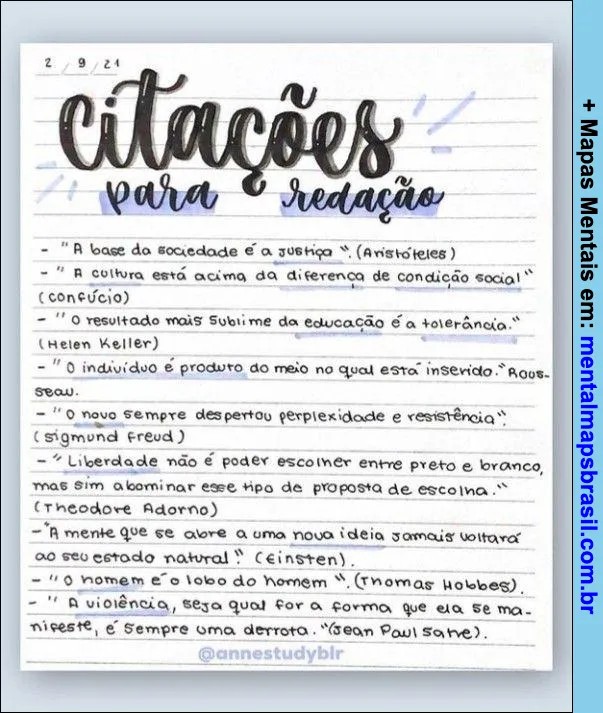 2 / 9 / 21
citações
para redação
- "A base da sociedade é a justiça". (Aristóteles)
- "A cultura está acima da diferença de condição social"
(confúcio)
- "O resultado mais sublime da educação é a tolerância."
(Helen Keller)
- "O indivíduo é produto do meio no qual está inserido." Rous-
seau.
- "O novo sempre despertou perplexidade e resistência".
(sigmund freud)
- "Liberdade não é poder escolher entre preto e branco,
mas sim abominar esse tipo de proposta de escolha."
(Theodore Adorno)
- "A mente que se abre a uma nova ideia jamais voltará
ao seu estado natural". (Einsten).
- "O homem é o lobo do homem". (Thomas Hobbes).
- "A violência, seja qual for a forma que ela se ma-
nifeste, é sempre uma derrota." (Jean Paul Satre).
@annestudyblr
+ Mapas Mentais em: mentalmapsbrasil.com.br